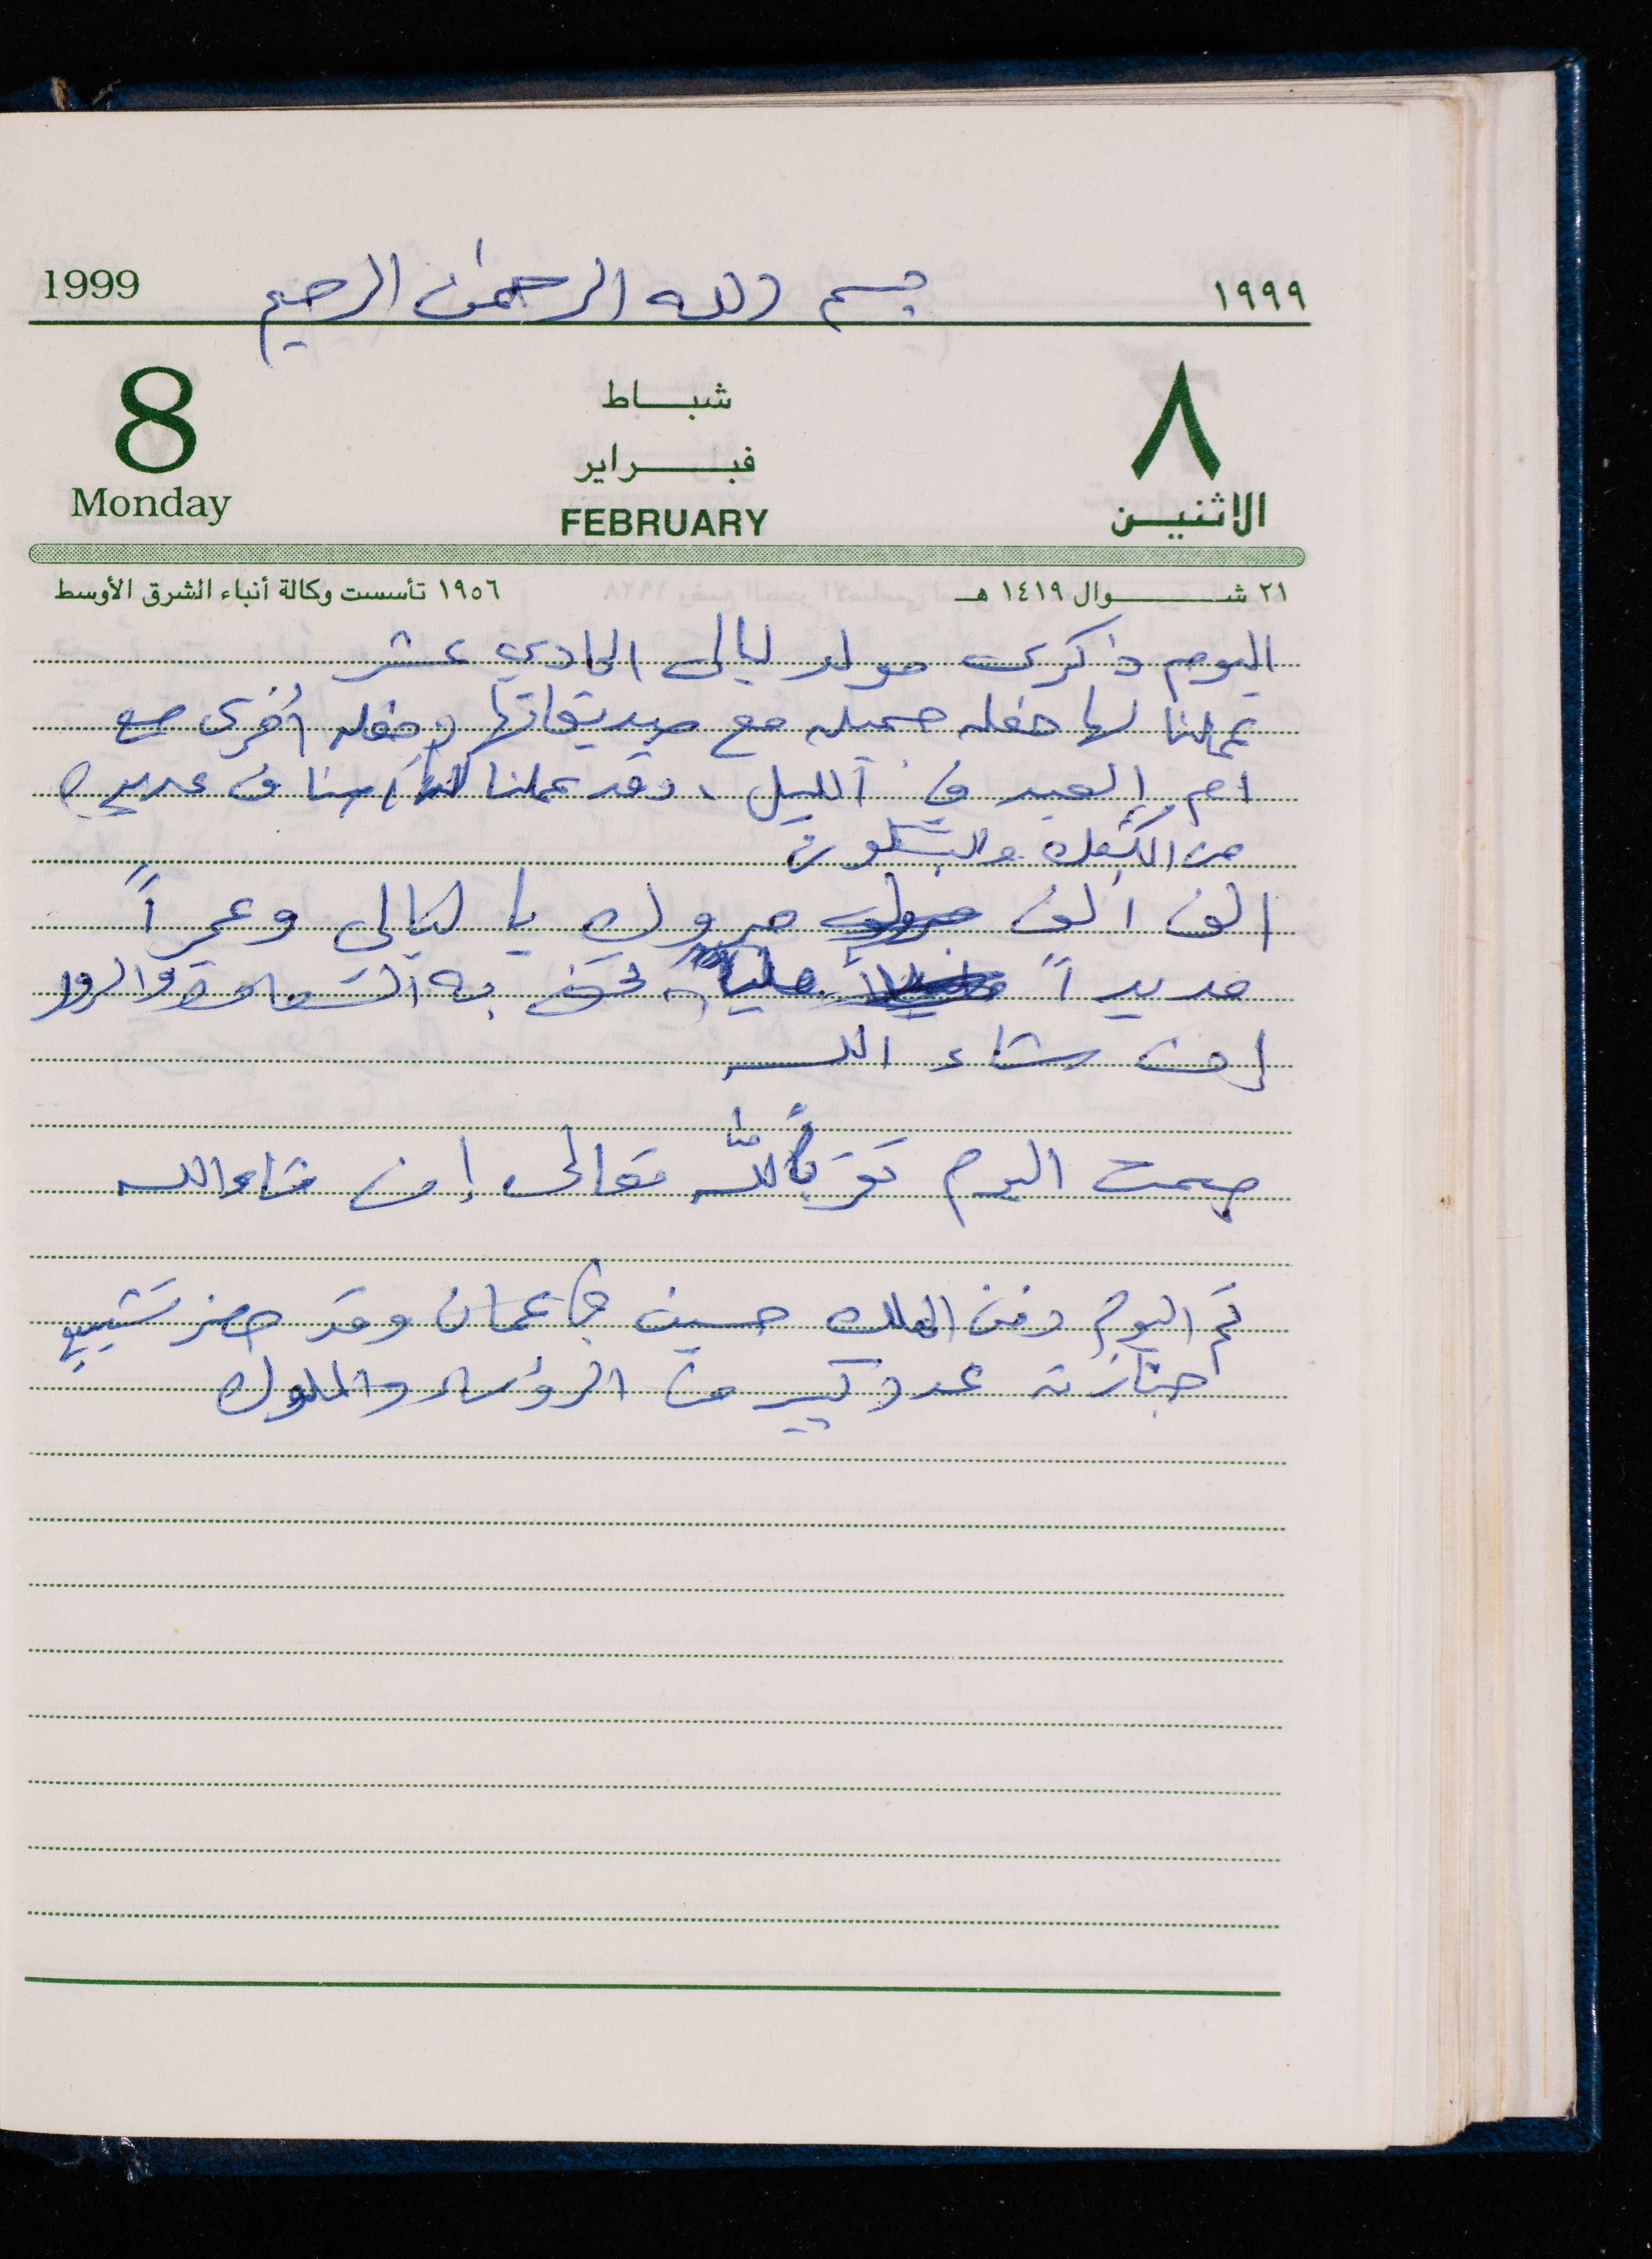 بسم الله الرحمٰن الرحيم
1999 ١٩٩٩
8 شباط ٨
فبراير
Monday FEBRUARY الاثنين
٢١ شوال ١٤١٩ هـ ١٩٥٦ تأسست وكالة أنباء الشرق الأوسط
اليوم ذكرى مولد ليالى الحادي عشر
عملنا لها حفله جميله مع صديقاتها وحفله أخرى مع
ام العبد في الليل، وقد عملنا أصناف عديدة
من الكيك والبسكوت
الف الف مبروك يا ليالى وعمراً
مديداً مليئاً تحف به السعادة والسرور
إن شاء الله
صمت اليوم تقرباً لله تعالى إن شاء الله
تم اليوم دفن الملك حسين في عمان وقد حضر تشييع
جنازته عدد كبير من الرؤساء والملوك